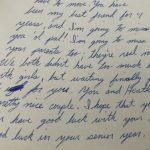 have to move. You have
been my best friend for 4
years, and I'm going to miss
you a'd pal! I'm going to miss
your parents too, they're real
We both didn't have too much
with girls, but waiting finally
for you. You and
pretty nice couple. I hope that you
have good luck with you
luck in your senior year.